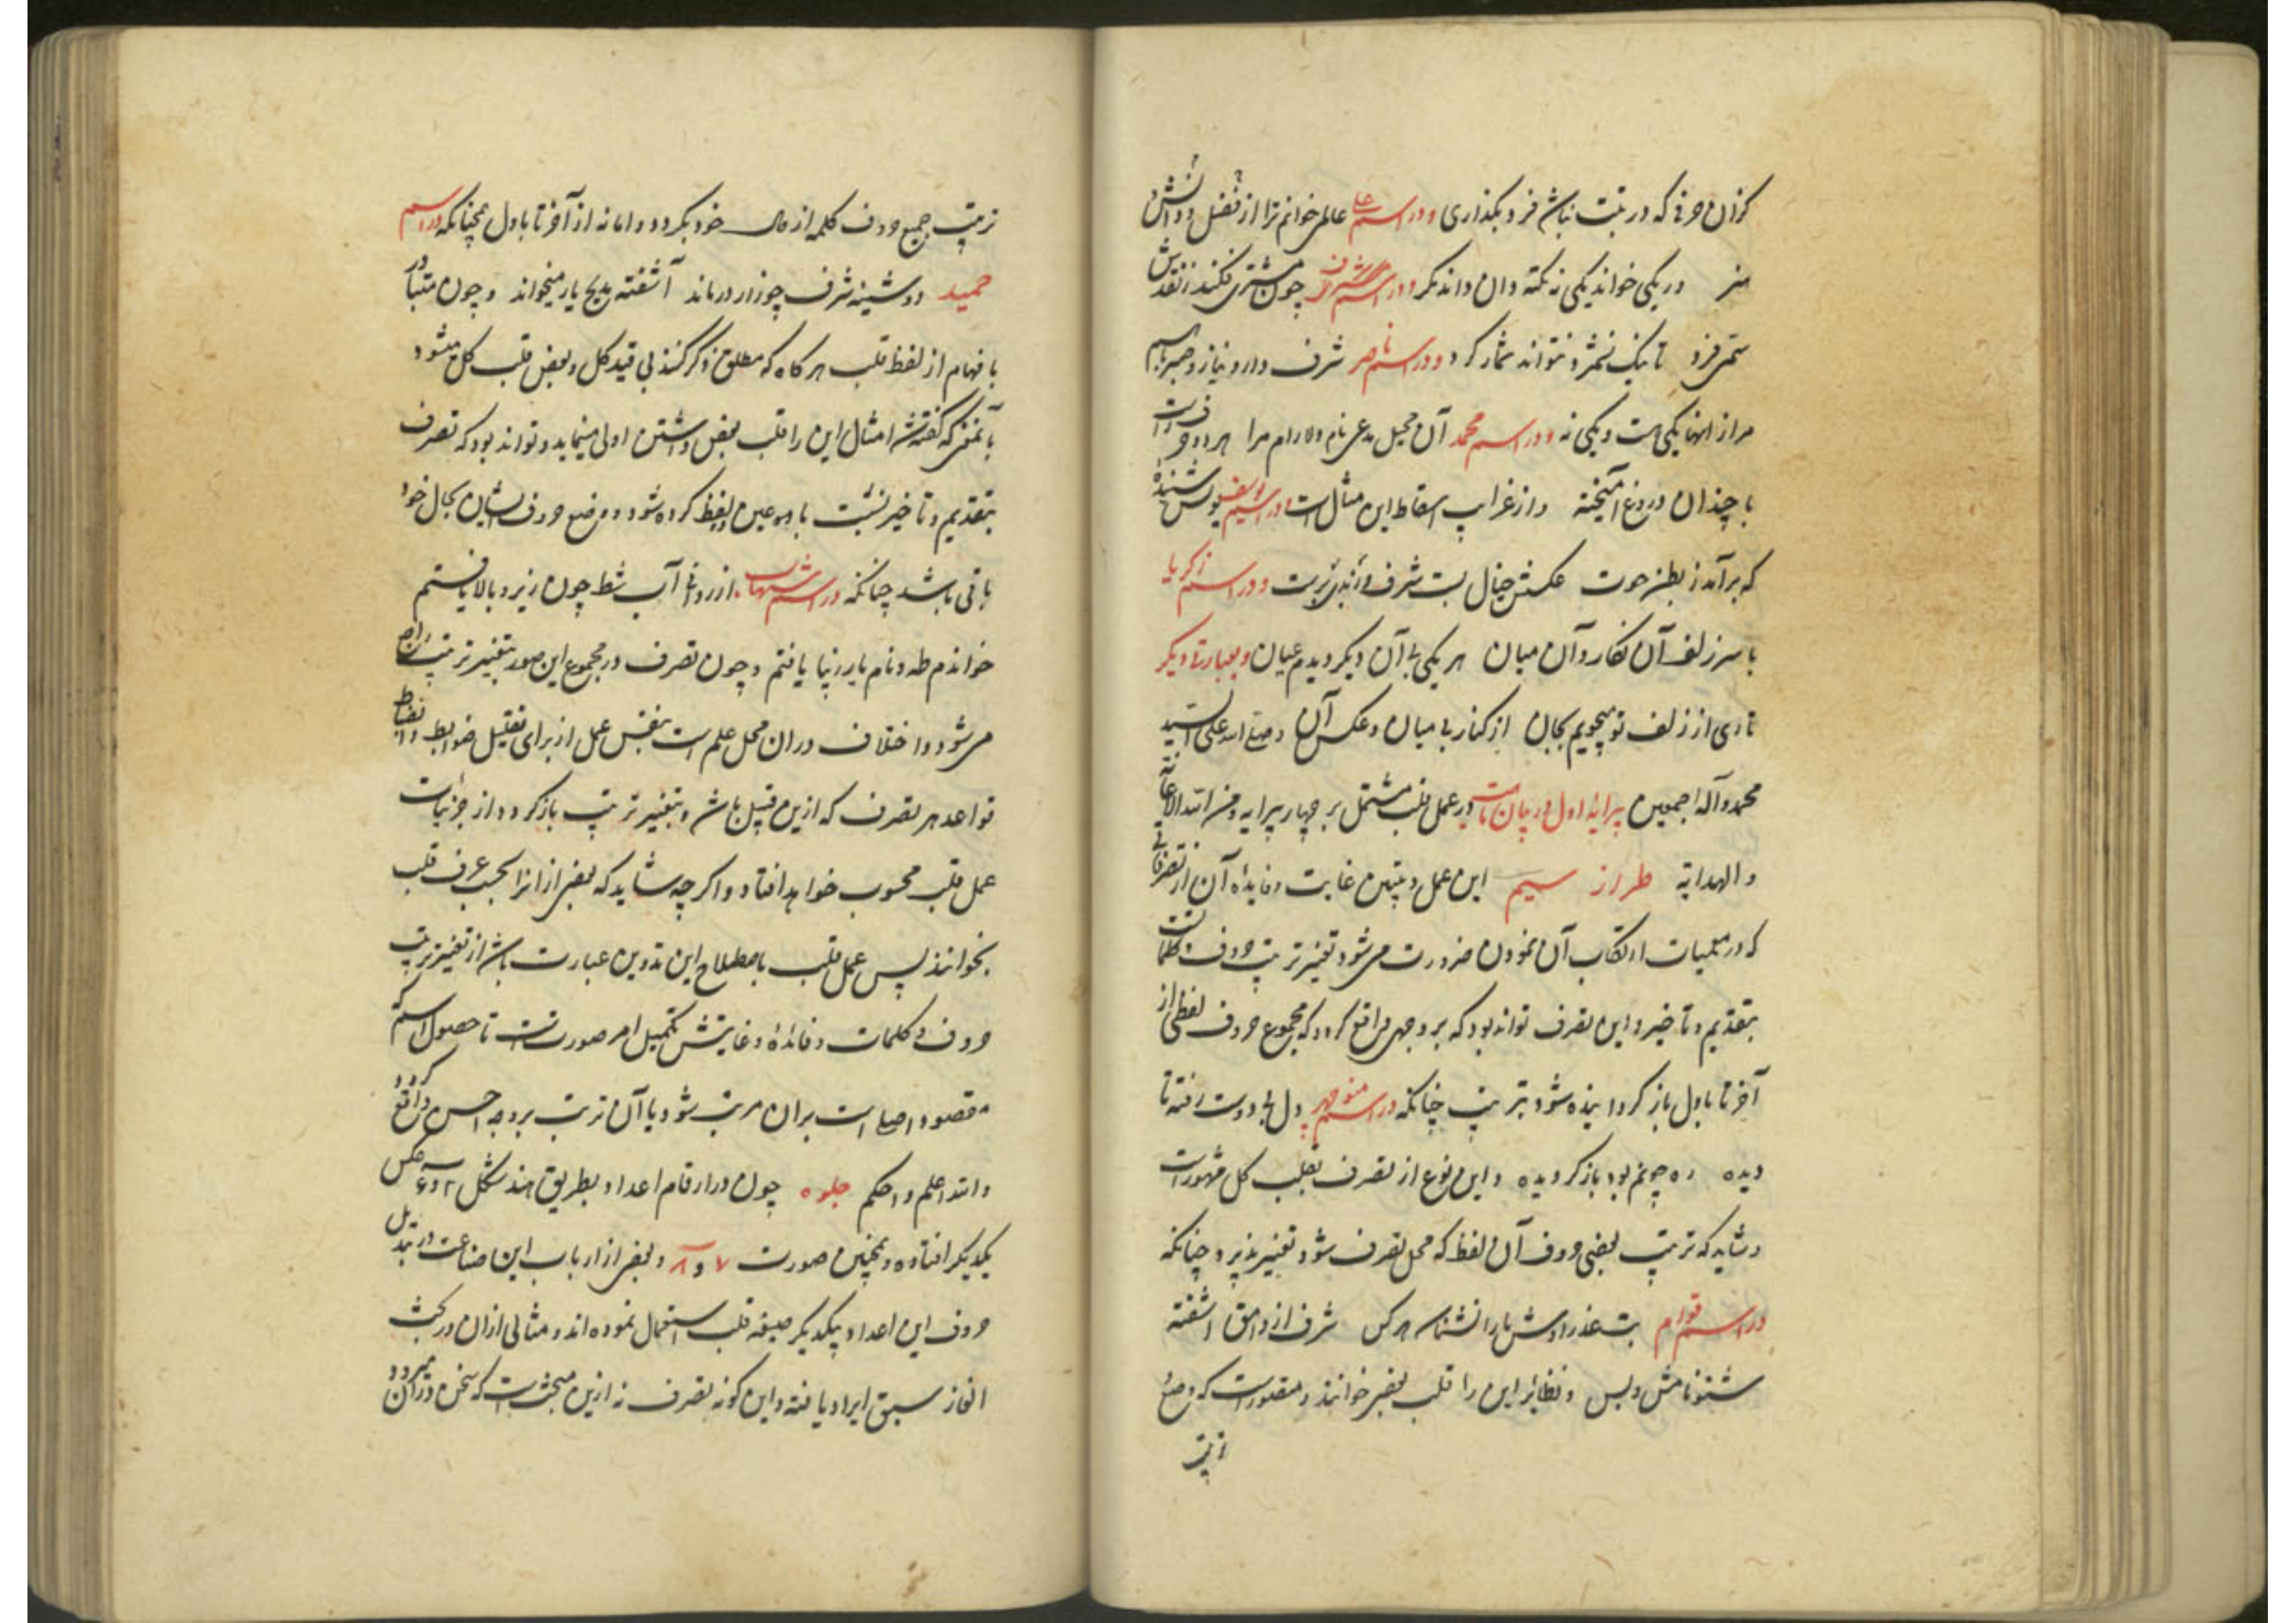 کزان حرفی که در بیت نباشد فرو بگذاری و در اسم علی عالمی خوانم ترا از فضل و دانش
در یکی خواند یکی نه نکته دان داند مگر و در اسم اشرف چون مشتری فکند ز نقدش
ستمی فرو تا یک نخمرد نتواند شمار کرد و در اسم ناصر شرف دارد نیاز و صبر باسم
مراز انها یکی هست و یکی نه و در اسم محمد آن جمیل مدعی نام دلارام مرا هر دو حرف
با چندان دروغ آمیخته و از غرایب اسقاط این مثال است در اسم یوسف یونس شنیده
که برآمد ز بطن حوت عکسش خیال بست شرف و در اسم زکریا
با سر زلف آن نگار و آن میان هر یکی بی آن دیگر دیدم عیان و بعبارتی دیگر
تاری از زلف تو میجویم بجان از کنار بی میان و عکس آن و صلی الله علی السید
محمد و آله اجمعین پیرایه اول در بیان در عمل قلب مشتمل بر چهار پیرایه و من الله الاعانة
و الهدایة طراز سیم این عمل و تبیین غایت و فایده آن از تصرفاتی
که در معمیات ارتکاب آن نمودن ضرورت می شود تغییر ترتیب حروف و کلمات است
بتقدیم و تاخیر و این تصرف تواند بود که بر وجهی واقع گردد که مجموع حروف لفظی از
آخر تا باول باز گردانیده شود بترتیب چنانکه در اسم منوچهر دل بی دوست رفته تا
دیده ره چونم بود باز گردیده و این نوع از تصرف بقلب کل مشهور است
و شاید که ترتیب بعضی حروف آن لفظ که محل تصرف شود تغییر پذیرد چنانکه
در اسم قوام بت عذرا وش ما را نشناسد هر کس شرف از وامق آشفته
شنو نامش و بس و نظایر این را قلب بعض خوانند و مقصود است که وضع
ترتیب
ترتیب جمیع حروف کلمه از حال خود بگردد و اما نه از آخر تا باول همچنانکه در اسم
حمید دوشینه شرف چو زار درماند آشفته مدیح یار میخواند و چون متبادر
بافهام از لفظ قلب هر گاه که مطلق ذکر کنند بی قید کل و بعض قلب کل میشود
بآنمعنی که گفته شد امثال این را قلب بعض داشتن اولی مینماید و تواند بود که تصرف
بتقدیم و تاخیر نسبت با دو عین لفظ کرده شود و وضع حروف ایشان بحال خود
باقی باشد چنانکه در اسم شهاب از روی آب شط چون زیر و بالا یافتم
خواندم طه و نام یار زیبا یافتم و چون تصرف در مجموع این صور بتغییر ترتیب راجع
می شود و اختلاف در ان محل علم است بنفس عمل از برای تقلیل ضوابط و انضباط
قواعد هر تصرف که ازین قبیل باشد و بتغییر ترتیب باز گردد از جزئیات
عمل قلب محسوب خواهد افتاد و اگر چه شاید که بعضی از انرا بحسب عرف قلب
نخوانند پس عمل قلب باصطلاح این تدوین عبارت باشد از تغییر ترتیب
حروف و کلمات و فائده و غایتش تکمیل امر صورتست تا حصول اسم که
مقصود اصلی است بران مرتب شود یا آن ترتیب بر وجه احسن واقع گردد
و الله اعلم و احکم جلوه چون در ارقام اعداد بطریق هند شکل ۲ و ۶ عکس
یکدیگر افتاده و همچنین صورت ۷ و ۸ و بعضی از ارباب این صناعت در تبدیل
حروف این اعداد بیکدیگر صیغه قلب استعمال نموده اند و مثالی ازان در بحث
الغاز سبق ایراد یافته و این گونه تصرف نه ازین مبحث است که سخن در آن میرود